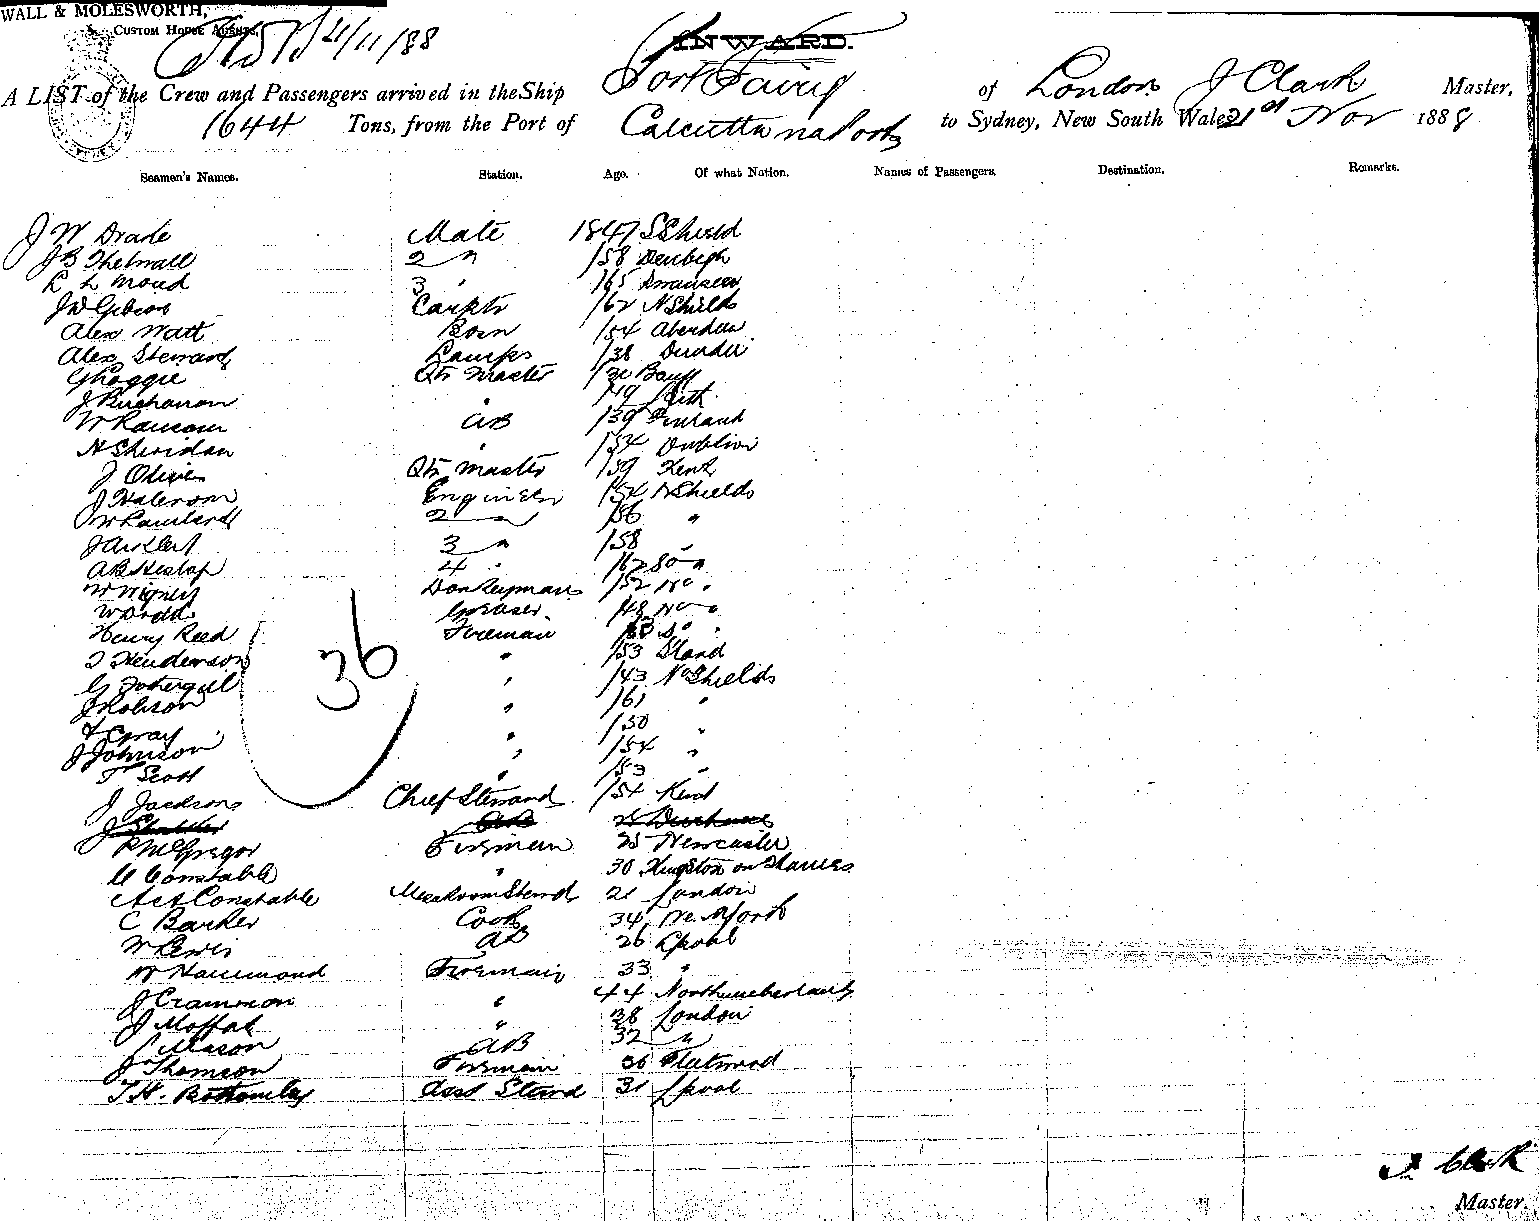 WALL & MOLESWORTH,
CUSTOM HOUSE AGENTS,
21/11/88
INWARD.
A LIST of the Crew and Passengers arrived in the Ship Port Fairy of London J Clark Master,
1644 Tons, from the Port of Calcutta via Ports to Sydney, New South Wales 21st Nov 1888
Seamen's Names. Station. Age. Of what Nation. Names of Passengers. Destination. Remarks.
J W Drade Mate 1847 S Shield
J B Thelwall 2 " /58 Denbigh
3 " /65 Swansea
J W Gibson Carptr /62 N Shields
Alex Watt Bosn /54 Aberdeen
Alex Steward Lamps /38 Dundee
Qtr Master Banff
J Buchanan " /49 Leith
W Ransom AB /39 Finland
H Sheridan " /54 Dublin
J Oliver Qtr Master /59 Kent
Engineer /54 N Shields
W Rowland 2 " /56 "
3 " /58 "
A B Heslop 4 " /62 So "
Donkeyman /52 No "
W Dodd Greaser /48 No "
Henry Reed Fireman So "
T Henderson " /53 Sland
G Fothergill " /43 No Shields
J Robson " /61 "
T Gray " /50
J Johnson " /54 "
T Scott " /53 "
36
J Jackson Chief Steward /54 Kent
P McGregor Fireman 25 Newcaster
C Constable " 30 Kingston on Thames
Constable Messroom Steward 21 London
C Barker Cook 34 New York
W Lewis AB 26 Lpool
W Hammond Fireman 33 "
J Crammon " 44 Northumberland
J Moffat " 38 London
Mason AB 32 "
J Thomson Fireman 36 Fleetwood
T H. Bottomley Asst Steward 31 Lpool
J Clark
Master.